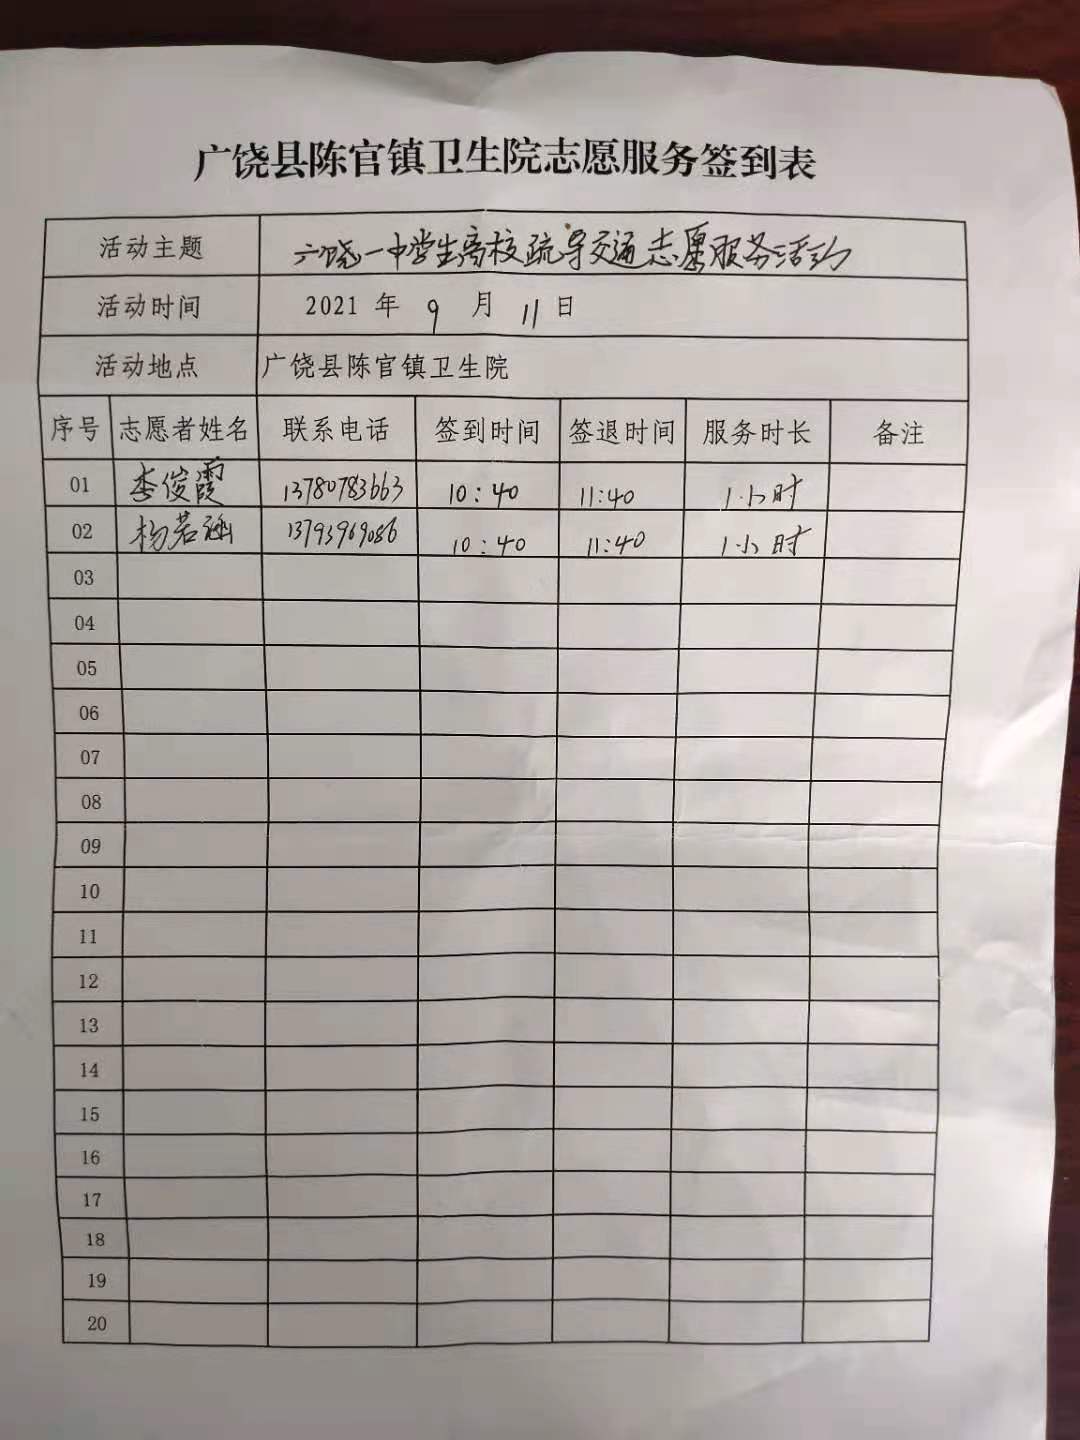 广饶县陈官镇卫生院志愿服务签到表
活动主题 广饶一中学生离校疏导交通志愿服务活动
活动时间 2021 年 9 月 11 日
活动地点 广饶县陈官镇卫生院
序号 志愿者姓名 联系电话 签到时间 签退时间 服务时长 备注
01 李俊霞 13780783663 10:40 11:40 1小时
02 杨若涵 13793969086 10:40 11:40 1小时
03
04
05
06
07
08
09
10
11
12
13
14
15
16
17
18
19
20